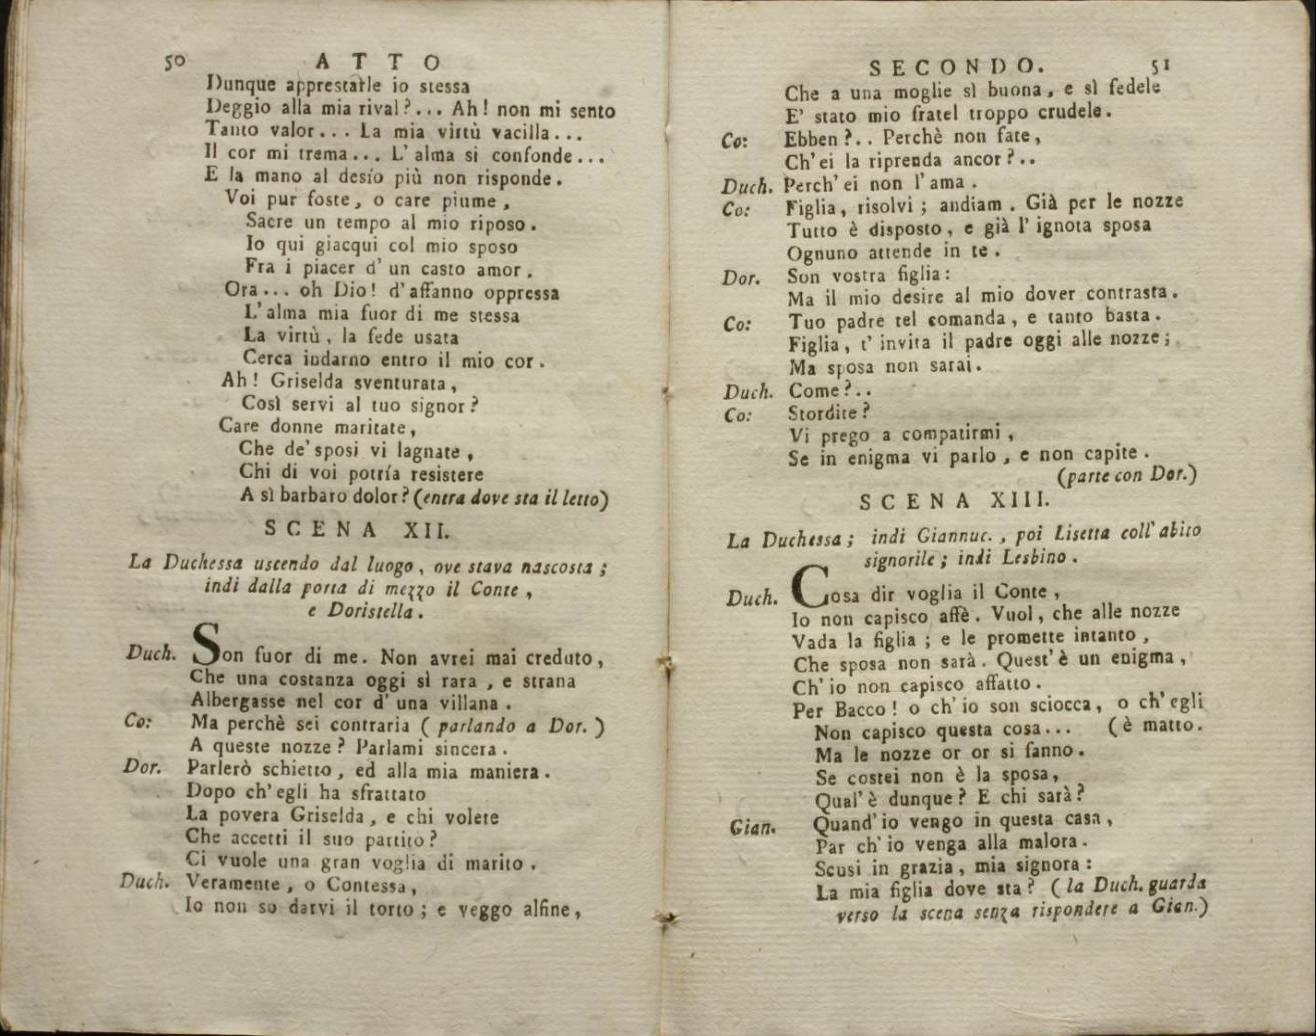 50 ATTO
Dunque apprestarle io stessa
Deggio alla mia rival?... Ah! non mi sento
Tanto valor... La mia virtù vacilla...
Il cor mi trema... L'alma si confonde...
E la mano al desío più non risponde.
Voi pur foste, o care piume,
Sacre un tempo al mio riposo.
Io qui giacqui col mio sposo
Fra i piacer d'un casto amor.
Ora... oh Dio! d'affanno oppressa
L'alma mia fuor di me stessa
La virtù, la fede usata
Cerca indarno entro il mio cor.
Ah! Griselda sventurata,
Così servi al tuo signor?
Care donne maritate,
Che de' sposi vi lagnate,
Chi di voi potría resistere
A sì barbaro dolor? (entra dove sta il letto)
SCENA XII.
La Duchessa uscendo dal luogo, ove stava nascosta;
indi dalla porta di mezzo il Conte,
e Doristella.
Duch. Son fuor di me. Non avrei mai creduto,
Che una costanza oggi sì rara, e strana
Albergasse nel cor d'una villana.
Co: Ma perchè sei contraria (parlando a Dor.)
A queste nozze? Parlami sincera.
Dor. Parlerò schietto, ed alla mia maniera.
Dopo ch'egli ha sfrattato
La povera Griselda, e chi volete
Che accetti il suo partito?
Ci vuole una gran voglia di marito.
Duch. Veramente, o Contessa,
Io non so darvi il torto; e veggo alfine,
SECONDO. 51
Che a una moglie sì buona, e sì fedele
E' stato mio fratel troppo crudele.
Co: Ebben?.. Perchè non fate,
Ch'ei la riprenda ancor?..
Duch. Perch'ei non l'ama.
Co: Figlia, risolvi; andiam. Già per le nozze
Tutto è disposto, e già l'ignota sposa
Ognuno attende in te.
Dor. Son vostra figlia:
Ma il mio desire al mio dover contrasta.
Co: Tuo padre tel comanda, e tanto basta.
Figlia, t'invita il padre oggi alle nozze;
Ma sposa non sarai.
Duch. Come?..
Co: Stordite?
Vi prego a compatirmi,
Se in enigma vi parlo, e non capite.
(parte con Dor.)
SCENA XIII.
La Duchessa; indi Giannuc., poi Lisetta coll'abito
signorile; indi Lesbino.
Duch. Cosa dir voglia il Conte,
Io non capisco affè. Vuol, che alle nozze
Vada la figlia; e le promette intanto,
Che sposa non sarà. Quest'è un enigma,
Ch'io non capisco affatto.
Per Bacco! o ch'io son sciocca, o ch'egli
Non capisco questa cosa... (è matto.
Ma le nozze or or si fanno.
Se costei non è la sposa,
Qual'è dunque? E chi sarà?
Gian. Quand'io vengo in questa casa,
Par ch'io venga alla malora.
Scusi in grazia, mia signora:
La mia figlia dove sta? (la Duch. guarda
verso la scena senza rispondere a Gian.)